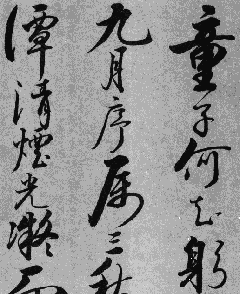 童子何知躬
九月序属三秋
潭清煙光凝而